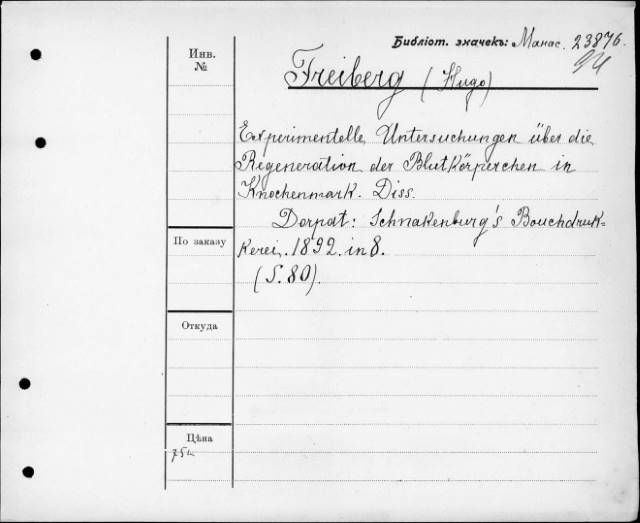 Библіот. значекъ: Манас. 23876.
Инв. №
Freiberg (Hugo)
Experimentelle Untersuchungen über die
Regeneration der Blutkörperchen in
Knochenmark. Diss.
Dorpat: Schnakenburg's Bouchdruk-
kerei. 1892. in 8.
(S. 80).
По заказу
Откуда
Цѣна